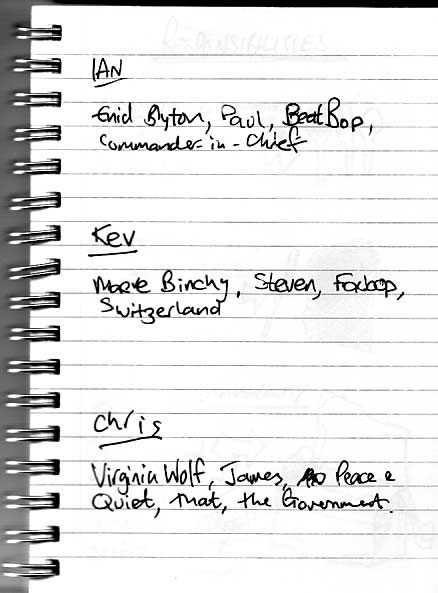 IAN
Enid Blyton, Paul, Beat Bop,
Commander-in-Chief
Kev
Maeve Binchy, Steven, Foxbop,
Switzerland
Chris
Virginia Wolf, James, Peace &
Quiet, that, the Government.